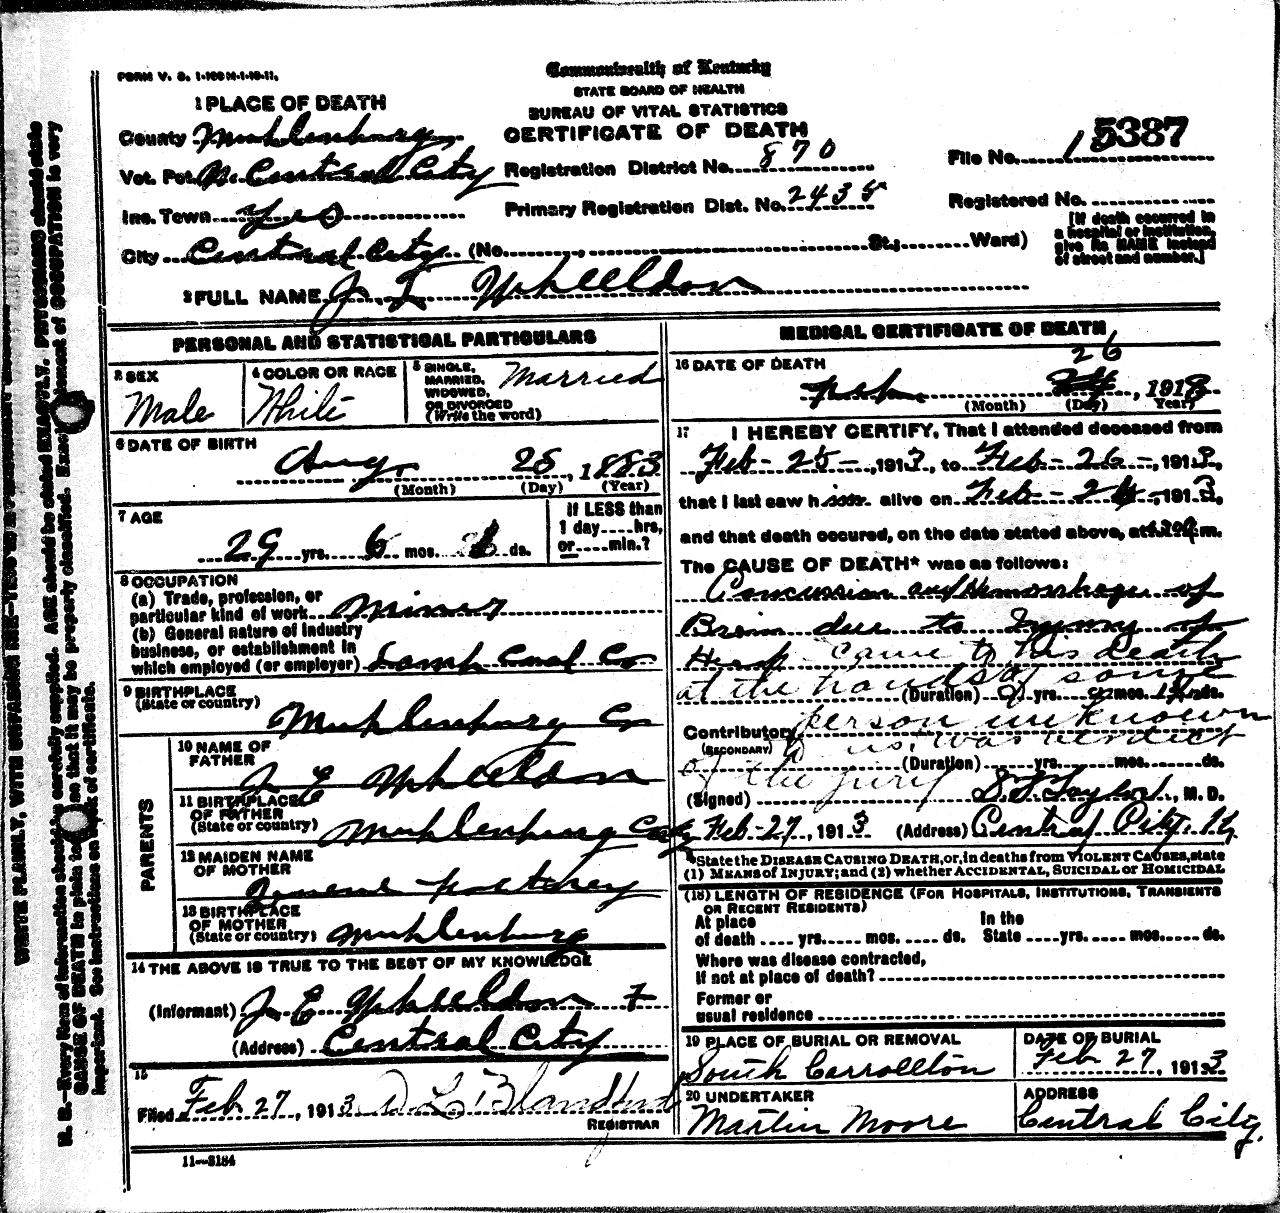 FORM V. S. 1-100M-1-10-11.
Commonwealth of Kentucky
STATE BOARD OF HEALTH
BUREAU OF VITAL STATISTICS
CERTIFICATE OF DEATH
1 PLACE OF DEATH
County Muhlenburg
Vot. Pct. N. Central City
Inc. Town Yes
City Central City (No. , St.; Ward)
Registration District No. 870
Primary Registration Dist. No. 2435
File No. 5387
Registered No.
[If death occurred in a hospital or institution, give its NAME instead of street and number.]
2 FULL NAME J L Wheeldon
PERSONAL AND STATISTICAL PARTICULARS
3 SEX
Male
4 COLOR OR RACE
White
5 SINGLE, MARRIED, WIDOWED, OR DIVORCED (Write the word)
Married
6 DATE OF BIRTH
Aug. 28, 1883
(Month) (Day) (Year)
7 AGE
29 yrs. 6 mos. ds.
If LESS than 1 day....hrs, or....min.?
8 OCCUPATION
(a) Trade, profession, or particular kind of work Miner
(b) General nature of industry business, or establishment in which employed (or employer) Coal Co
9 BIRTHPLACE
(State or country)
Muhlenburg Co
PARENTS
10 NAME OF FATHER
J E Wheeldon
11 BIRTHPLACE OF FATHER
(State or country) Muhlenburg
12 MAIDEN NAME OF MOTHER
13 BIRTHPLACE OF MOTHER
(State or country) Muhlenburg
14 THE ABOVE IS TRUE TO THE BEST OF MY KNOWLEDGE
(Informant) J E Wheeldon
(Address) Central City
15
Filed Feb 27, 1913 D L Blandford
REGISTRAR
11—3184
MEDICAL CERTIFICATE OF DEATH
16 DATE OF DEATH
Feb. 26, 1913
(Month) (Day) Year)
17 I HEREBY CERTIFY, That I attended deceased from
Feb - 25 -, 1913, to Feb - 26 -, 1913,
that I last saw him alive on Feb - 26 -, 1913,
and that death occured, on the date stated above, at m.
The CAUSE OF DEATH* was as follows:
Concussion and Hemorrhage of
Brain due to Injury of
Head came to his death
at the hands of some
(Duration) yrs. mos. ds.
Contributory person unknown
(SECONDARY) to us, was verdict
(Duration) yrs. mos. ds.
of the jury
(Signed) S J Taylor, M. D.
Feb-27, 1913 (Address) Central City, Ky
*State the DISEASE CAUSING DEATH, or, in deaths from VIOLENT CAUSES, state
(1) MEANS OF INJURY; and (2) whether ACCIDENTAL, SUICIDAL or HOMICIDAL
(18) LENGTH OF RESIDENCE (FOR HOSPITALS, INSTITUTIONS, TRANSIENTS OR RECENT RESIDENTS)
At place of death .... yrs..... mos. .... ds. In the State ....yrs.....mos.....ds.
Where was disease contracted,
If not at place of death?
Former or
usual residence
19 PLACE OF BURIAL OR REMOVAL
South Carrollton
DATE OF BURIAL
Feb 27, 1913
20 UNDERTAKER
Martin Moore
ADDRESS
Central City.
WRITE PLAINLY, WITH UNFADING INK—THIS IS A PERMANENT
N. B.—Every item of information should be carefully supplied. AGE should be stated EXACTLY. PHYSICIANS should state
CAUSE OF DEATH in plain terms, so that it may be properly classified. Exact statement of OCCUPATION is very
important. See instructions on back of certificate.